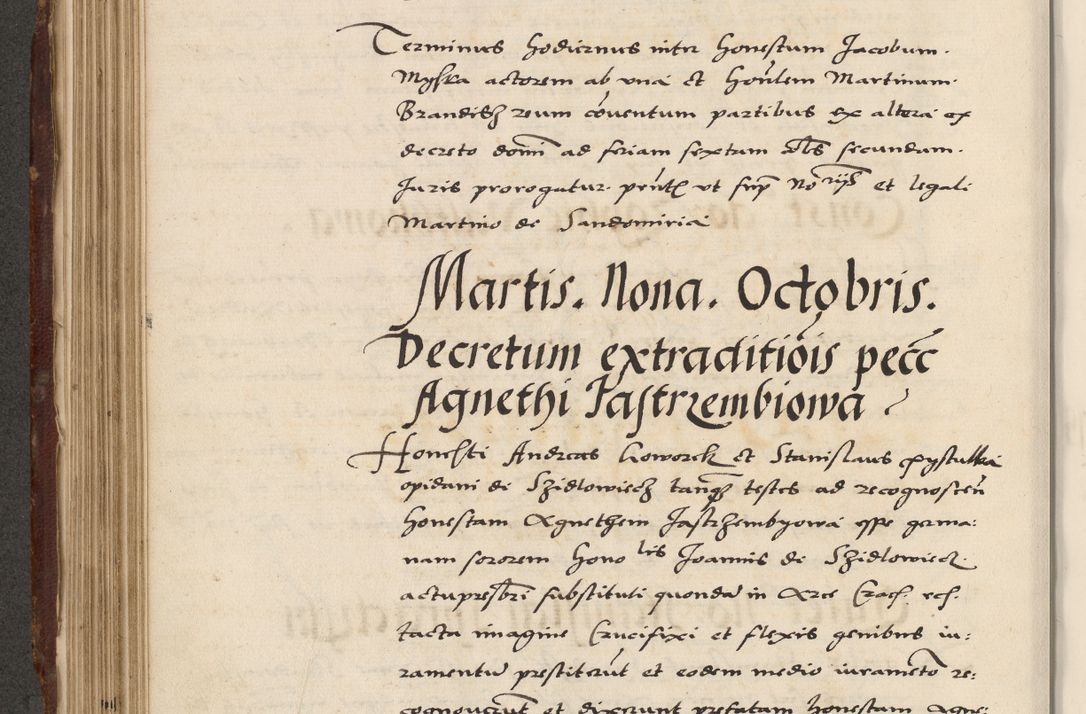 Terminus hodiernus inter honestum Jacobum
Myska actorem ab una et honlem Martinum
Brandisz reum coventum partibus ex altera ex
decreto domi ad feriam sextam secundum
Juris prorogatur. et legali
Martino de Sandomiria
Martis. Nona. Octobris.
Decretum extraditiois pecc
Agnethi Jastrzembiowa
Honesti Andreas Goworek et Stanislaus
opidani de Szidlowiecz tanq testes ad recognoscen
honestam Agnethem Jastrzembyowa esse germa:
nam sororem hono lis Joannis de Szidlowiecz
actu presbri substituti quonda in Arce Crac
tacta imagine Crucifixi et flexis genibus iu:
ramentu prestiterut et eodem medio iurameto re:
cognoverut et dixerunt prefatam honestam Agne: